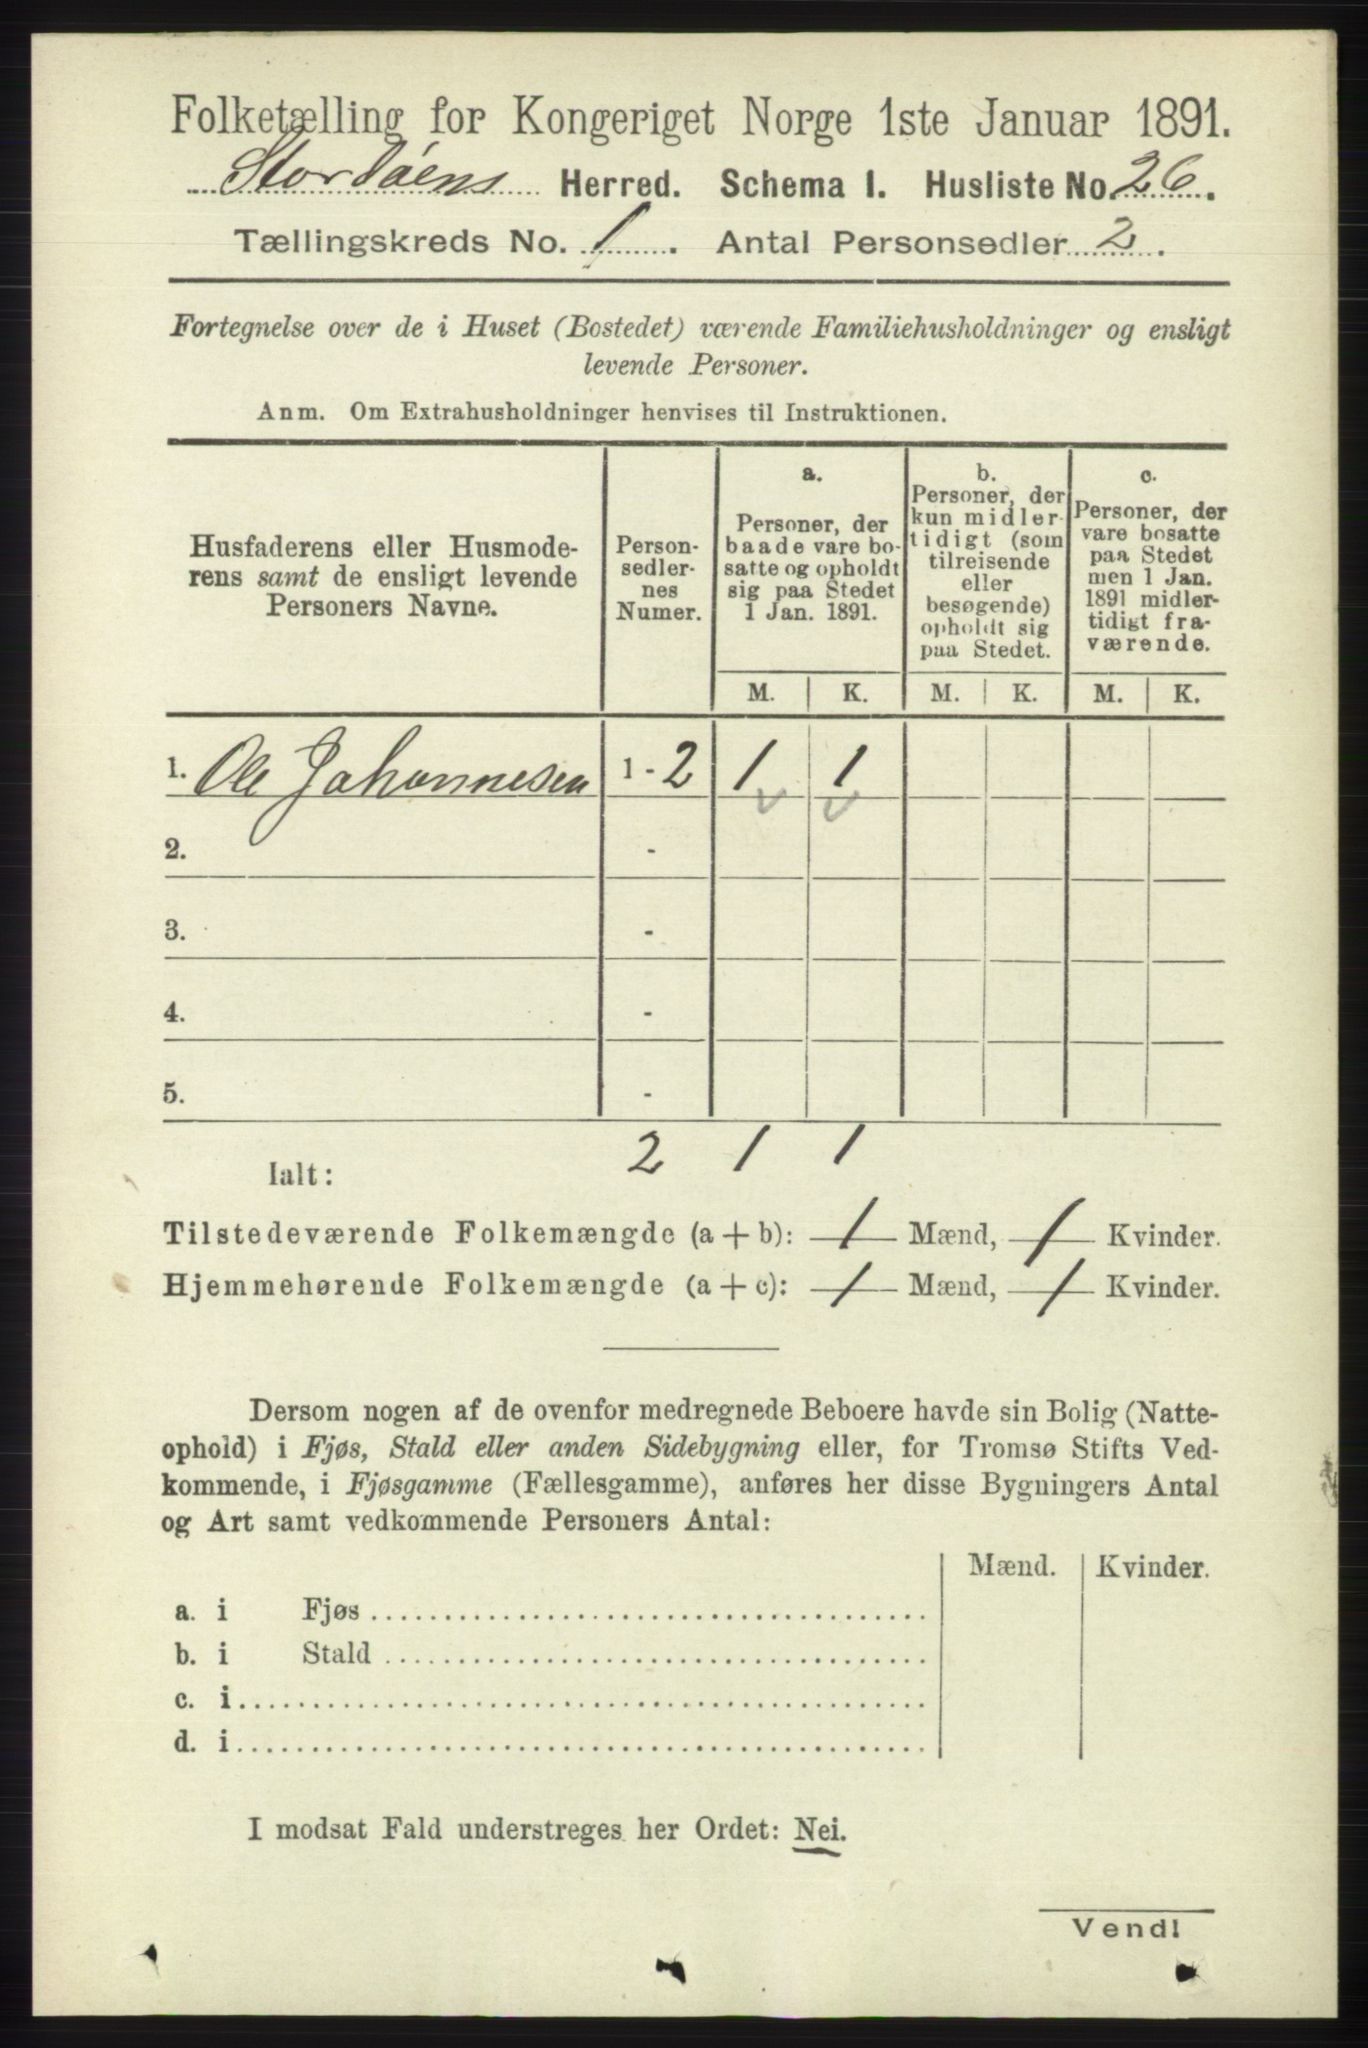 Folketælling for Kongeriget Norge 1ste Januar 1891.
Stordøens Herred. Schema I. Husliste No. 26.
Tællingskreds No. 1. Antal Personsedler 2.
Fortegnelse over de i Huset (Bostedet) værende Familiehusholdninger og ensligt
levende Personer.
Anm. Om Extrahusholdninger henvises til Instruktionen.
Husfaderens eller Husmode-
rens samt de ensligt levende
Personers Navne.
Person-
sedler-
nes
Numer.
a.
Personer, der
baade vare bo-
satte og opholdt
sig paa Stedet
1 Jan. 1891.
b.
Personer, der
kun midler-
tidigt (som
tilreisende
eller
besøgende)
opholdt sig
paa Stedet.
c.
Personer, der
vare bosatte
paa Stedet
men 1 Jan.
1891 midler-
tidigt fra-
værende.
M. K. M. K. M. K.
1. Ole Johannesen 1 - 2 1 1
2. -
3. -
4. -
5. -
Ialt: 2 1 1
Tilstedeværende Folkemængde (a + b): 1 Mænd, 1 Kvinder.
Hjemmehørende Folkemængde (a + c): 1 Mænd, 1 Kvinder.
Dersom nogen af de ovenfor medregnede Beboere havde sin Bolig (Natte-
ophold) i Fjøs, Stald eller anden Sidebygning eller, for Tromsø Stifts Ved-
kommende, i Fjøsgamme (Fællesgamme), anføres her disse Bygningers Antal
og Art samt vedkommende Personers Antal:
Mænd. Kvinder.
a. i Fjøs
b. i Stald
c. i
d. i
I modsat Fald understreges her Ordet: Nei.
Vend!